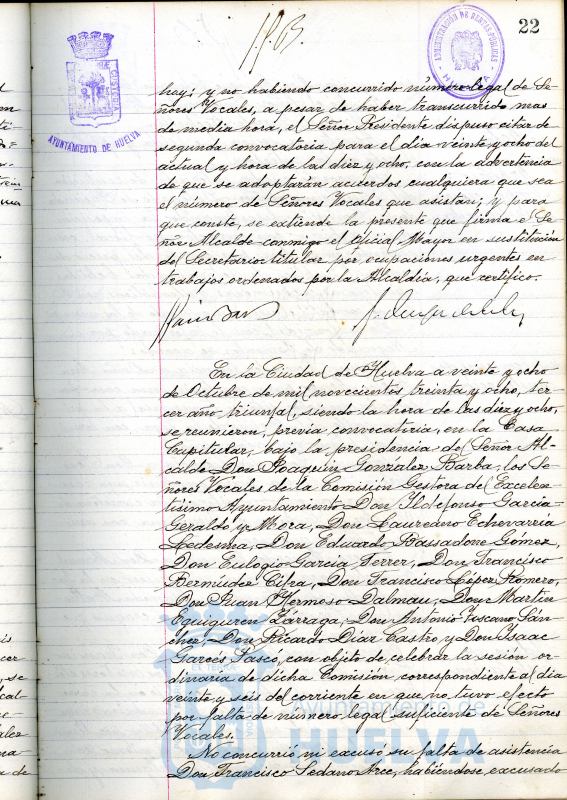 22
ADMINISTRACIÓN DE RENTAS PÚBLICAS
HUELVA
AYUNTAMIENTO DE HUELVA
hoy; y no habiendo concurrido número legal de Se-
ñores Vocales, a pesar de haber transcurrido mas
de media hora, el Señor Presidente dispuso citar de
segunda convocatoria para el dia veinte y ocho del
actual y hora de las diez y ocho, con la advertencia
de que se adoptarán acuerdos cualquiera que sea
el número de Señores Vocales que asistan; y para
que conste, se extiende la presente que firma el Se-
ñor Alcalde conmigo el Oficial Mayor en sustitución
del Secretario titular por ocupaciones urgentes en
trabajos ordenados por la Alcaldía, que certifico.
En la Ciudad de Huelva a veinte y ocho
de Octubre de mil novecientos treinta y ocho, ter-
cer año triunfal, siendo la hora de las diez y ocho,
se reunieron, previa convocatoria, en la Casa
Capitular, bajo la presidencia del Señor Al-
calde Don Joaquín González Barba, los Se-
ñores Vocales de la Comisión Gestora del Excelen-
tísimo Ayuntamiento Don Ildefonso Garcia
Geraldo y Mora, Don Laureano Echevarria
Ledesma, Don Eduardo Bassadone Gómez,
Don Eulogio Garcia Ferrer, Don Francisco
Bermúdez Cifra, Don Francisco López Romero,
Don Juan Hermoso Dalmau, Don Martin
Eguiguren Zárraga, Don Antonio Toscano Sán-
chez, Don Ricardo Diaz Castro y Don Isaac
Garcés Pascó, con objeto de celebrar la sesión or-
dinaria de dicha Comisión correspondiente al dia
veinte y seis del corriente en que no tuvo efecto
por falta de número legal suficiente de Señores
Vocales.
No concurrió ni excusó su falta de asistencia
Don Francisco Sedano Arce, habiéndose excusado
Ayuntamiento de
HUELVA